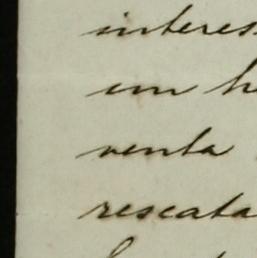 interes
un h
venta
rescata